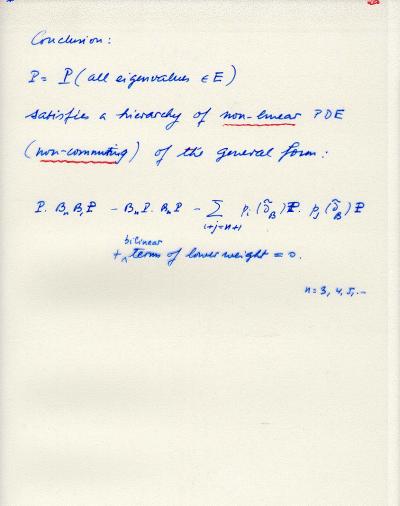 Conclusion:
P = P (all eigenvalues ∈ E)
satisfies a hierarchy of non-linear PDE
(non-commuting) of the general form:
P. BₙB₁P − BₙP. B₁P − ∑ pᵢ(∂̃_B)P. pⱼ(∂̃_B)P
i+j=n+1
bilinear
+ ‸ terms of lower weight = 0.
n = 3, 4, 5, ...